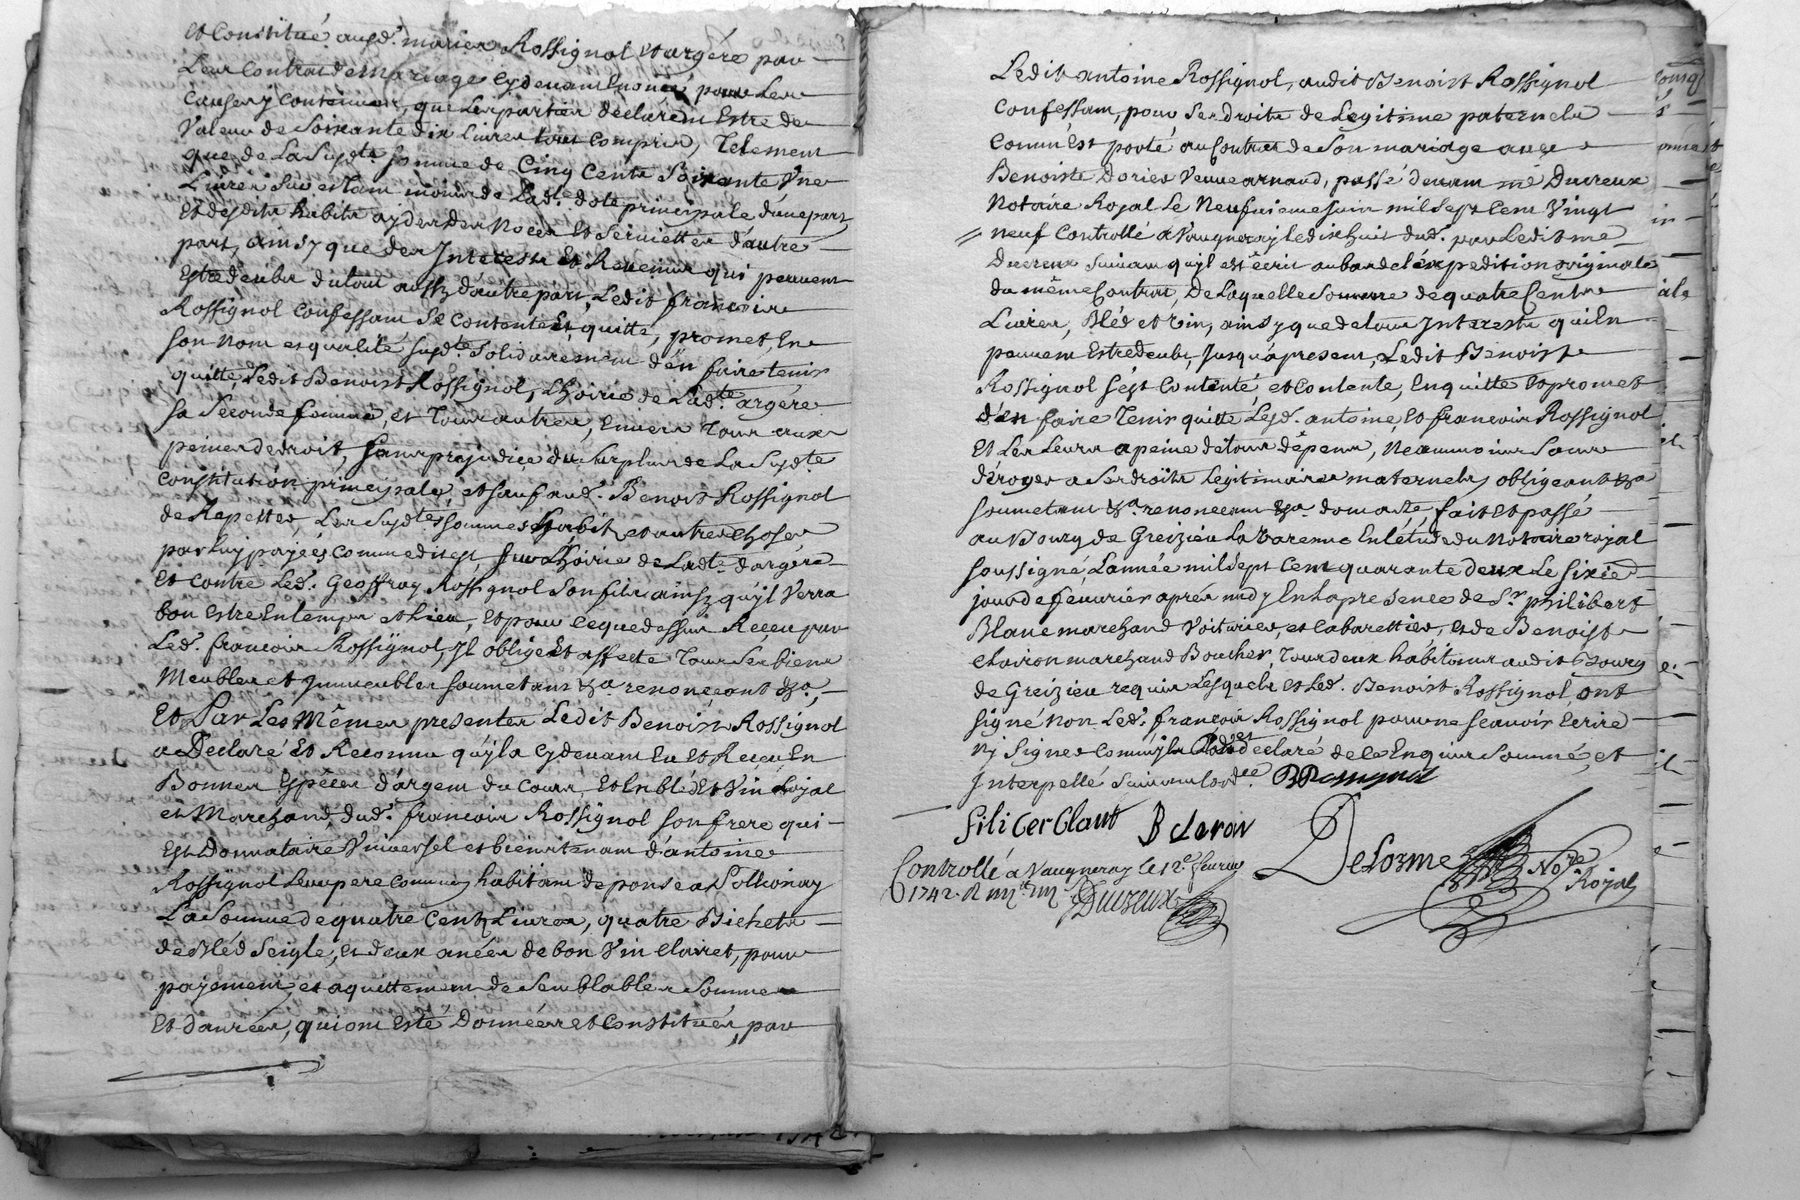 et Constitué ausd. mariés Rossignol et argére par
Leur Contrat de mariage cydevant Enoncé pour Les
Causes y contenues, que Les parties declarent Estre de
Valeur de Soixante dix Livres tout compris, Telement
que de La Susdte somme de Cinq Cents Soixante Une
Livres
et desdits habits aydes des Noces et Serviettes d'autre
part, ainsy que des Interests et Revenus qui peuvent
Estre deubs du tout aussy d'autre part, Ledit francois
Rossignol Confessant Se Contente et quitte, promet, En
son nom et qualité susdte solidairement d'en faire tenir
quitte, Ledit Benoist Rossignol, L'hoirie de Ladte argére
sa Seconde femme, et Tous autres, Envers Tous aux
peines de droit, sans prejudice du Surplus de La Susdte
constitution principale, et sauf aud. Benoist Rossignol
de Repetter, Les Susdtes sommes habits et autres choses
par luy payées comme dit est, sur L'hoirie de Ladte d'argére
et contre Led. Geoffray Rossignol Son fils ainsy qu'yl Verra
bon Estre En temps et Lieu, Et pour ce que dessus Receu par
Led. francois Rossignol, Il oblige et affecte Tous Ses biens
Meubles et Immeubles soumetans &a renoncent &a,
Et Par Les Mêmes presentes Ledit Benoist Rossignol
a Declaré et Reconnu qu'yl a cydevant Eu et Receu En
Bonnes Espéces d'argent du Cours, Et En bléd Et Vin Loyal
et Marchand, dud. francois Rossignol son frere qui
Est Donnataire Universel et bientenant d'antoine
Rossignol Leur pere commun habitant de
La Somme de quatre Cents Livres, quatre Bichets
de Bléd Seigle, et deux anées de bon Vin Clairet, pour
payement, et aquittement de Semblables Sommes
Et danrées, qui ont Esté Données et Constituées, par
Ledit antoine Rossignol, audit Benoist Rossignol
Confessant, pour Ses droits de Legitime paternels
Comm'est porté au Contrat de Son mariage avec
Benoiste Dories Veuve arnaud, passé devant me Ducreux
Notaire Royal Le Neufvieme Juin mil Sept Cent Vingt
neuf Controllé a Vaugneray le dixhuit dud. par Ledit me
Ducreux Suivant qu'yl est écrit au bas de l'éxpedition originale
du même Contrat, De Laquelle Somme de quatre Cents
Livres, Bléd et Vin, ainsy que de tous Interests qui En
peuvent Estre deubs, Jusqu'apresent, Ledit Benoist
Rossignol s'est Contenté, et Contente, En quitte et promet
d'en faire Tenir quitte Lesd. antoine, Et francois Rossignol
Et Les Leurs a peine de tous dépens, Neanmoins Sans
déroger a Ses droits Legitimaires maternels, obligeants &a
soumetant &a renoncent &a fait Et passé
au Bourg de Greizieu La Varenne En L'étude du Notaire royal
soussigné, L'année mil Sept Cent quarante deux Le Sixie
jour de fevrier aprés midy En La presence de Sr philibert
Blanc marchand Voiturier, et Cabarettier, et de Benoist
clairon marchand Boucher, Tous deux habitants audit Bourg
de Greizieu requis Lesquels et Led. Benoist Rossignol, ont
signé non Led. francois Rossignol pour ne scavoir Ecrire
ny Signer comm'yl a declaré de ce Enquis Sommé, et
Interpellé Suivant L'ordce. BRossignol
filiber blanc B cleron Delorme Nore Royal
Controllé à Vaugneray le 12e fevrier
1742. R
Ducreux